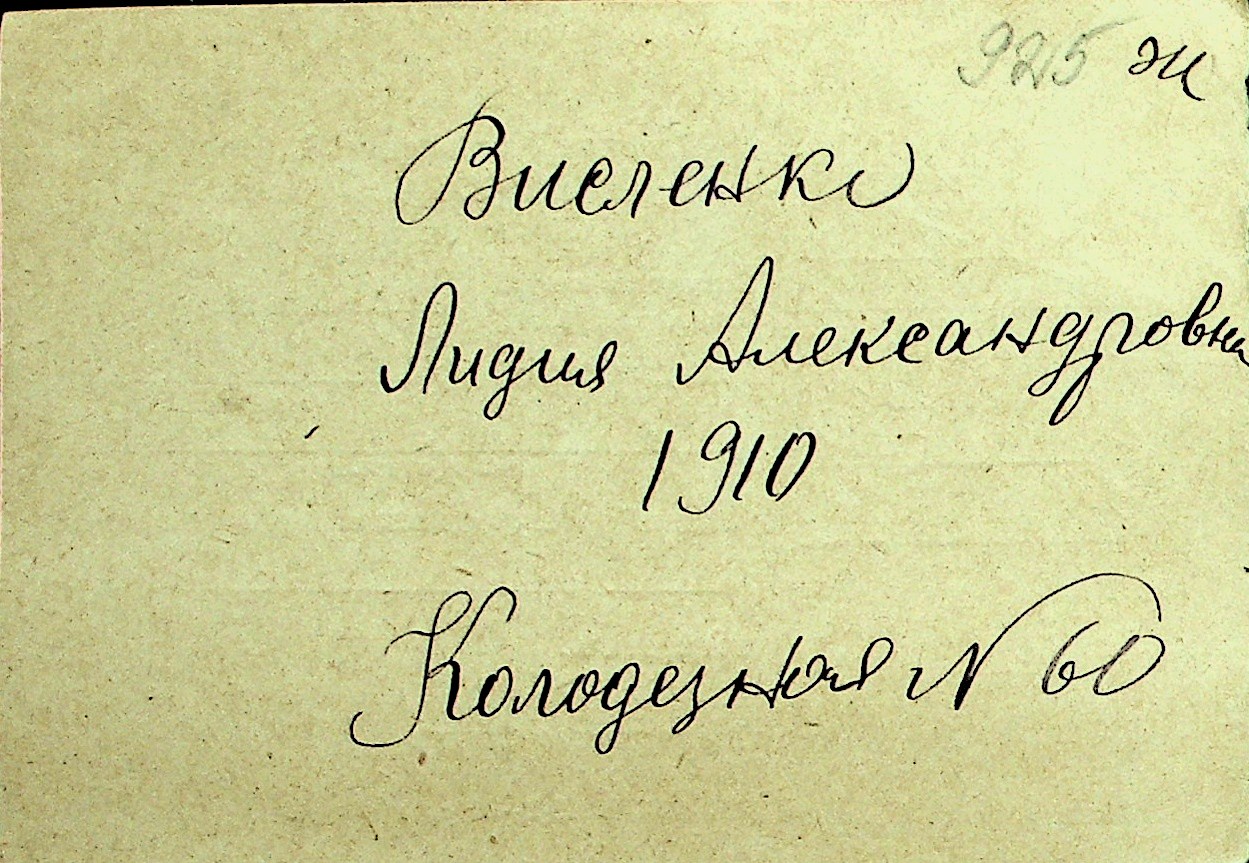 925 ж
Висленко
Лидия Александровн
1910
Колодезная N 60